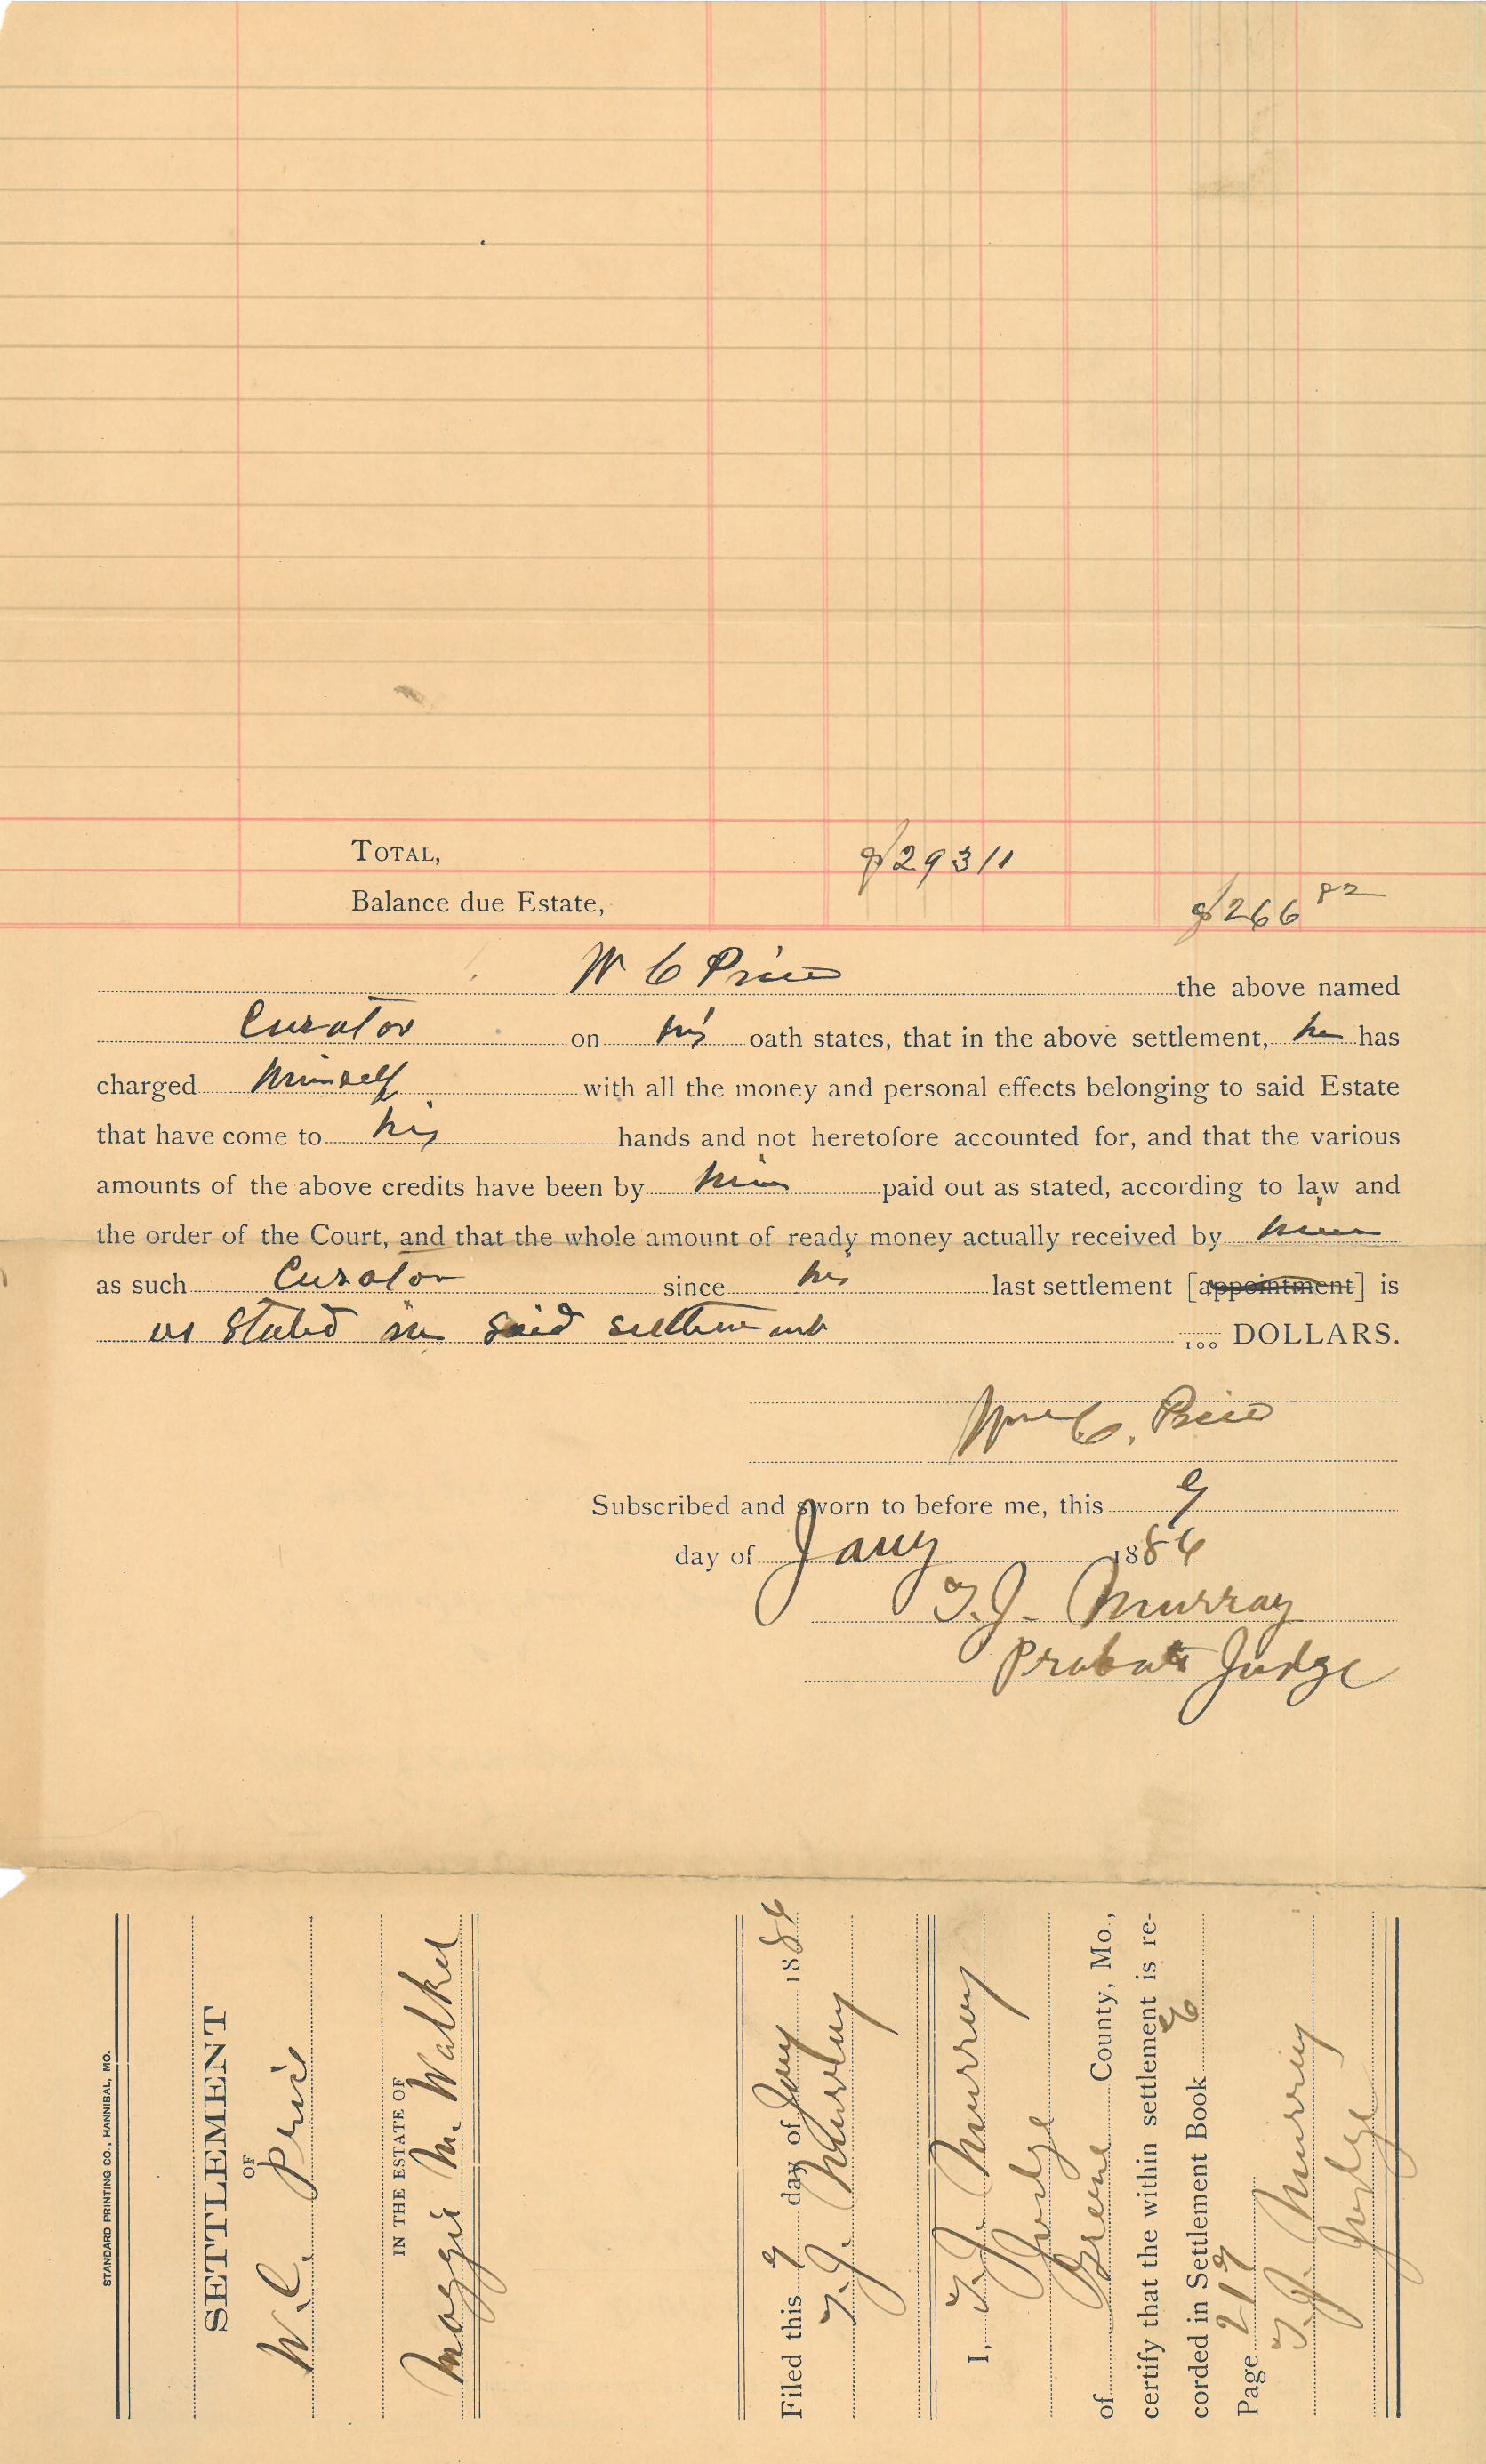 TOTAL, $293 11
Balance due Estate, $266 82
W C Price the above named
Curator on his oath states, that in the above settlement, he has
charged himself with all the money and personal effects belonging to said Estate
that have come to his hands and not heretofore accounted for, and that the various
amounts of the above credits have been by him paid out as stated, according to law and
the order of the Court, and that the whole amount of ready money actually received by him
as such Curator since his last settlement [appointment] is
as Stated in said settlement 100 DOLLARS.
Wm C. Price
Subscribed and sworn to before me, this 9
day of Jany 1886
T. J. Murray
Probate Judge
STANDARD PRINTING CO., HANNIBAL, MO.
SETTLEMENT
OF
W. C. Price
IN THE ESTATE OF
Maggie M. Walker
Filed this 9 day of Jany 1886
T. J. Murray
I, T. J. Murray
Judge
of Greene County, Mo.,
certify that the within settlement is re-
corded in Settlement Book
Page 219
T. J. Murray
Judge